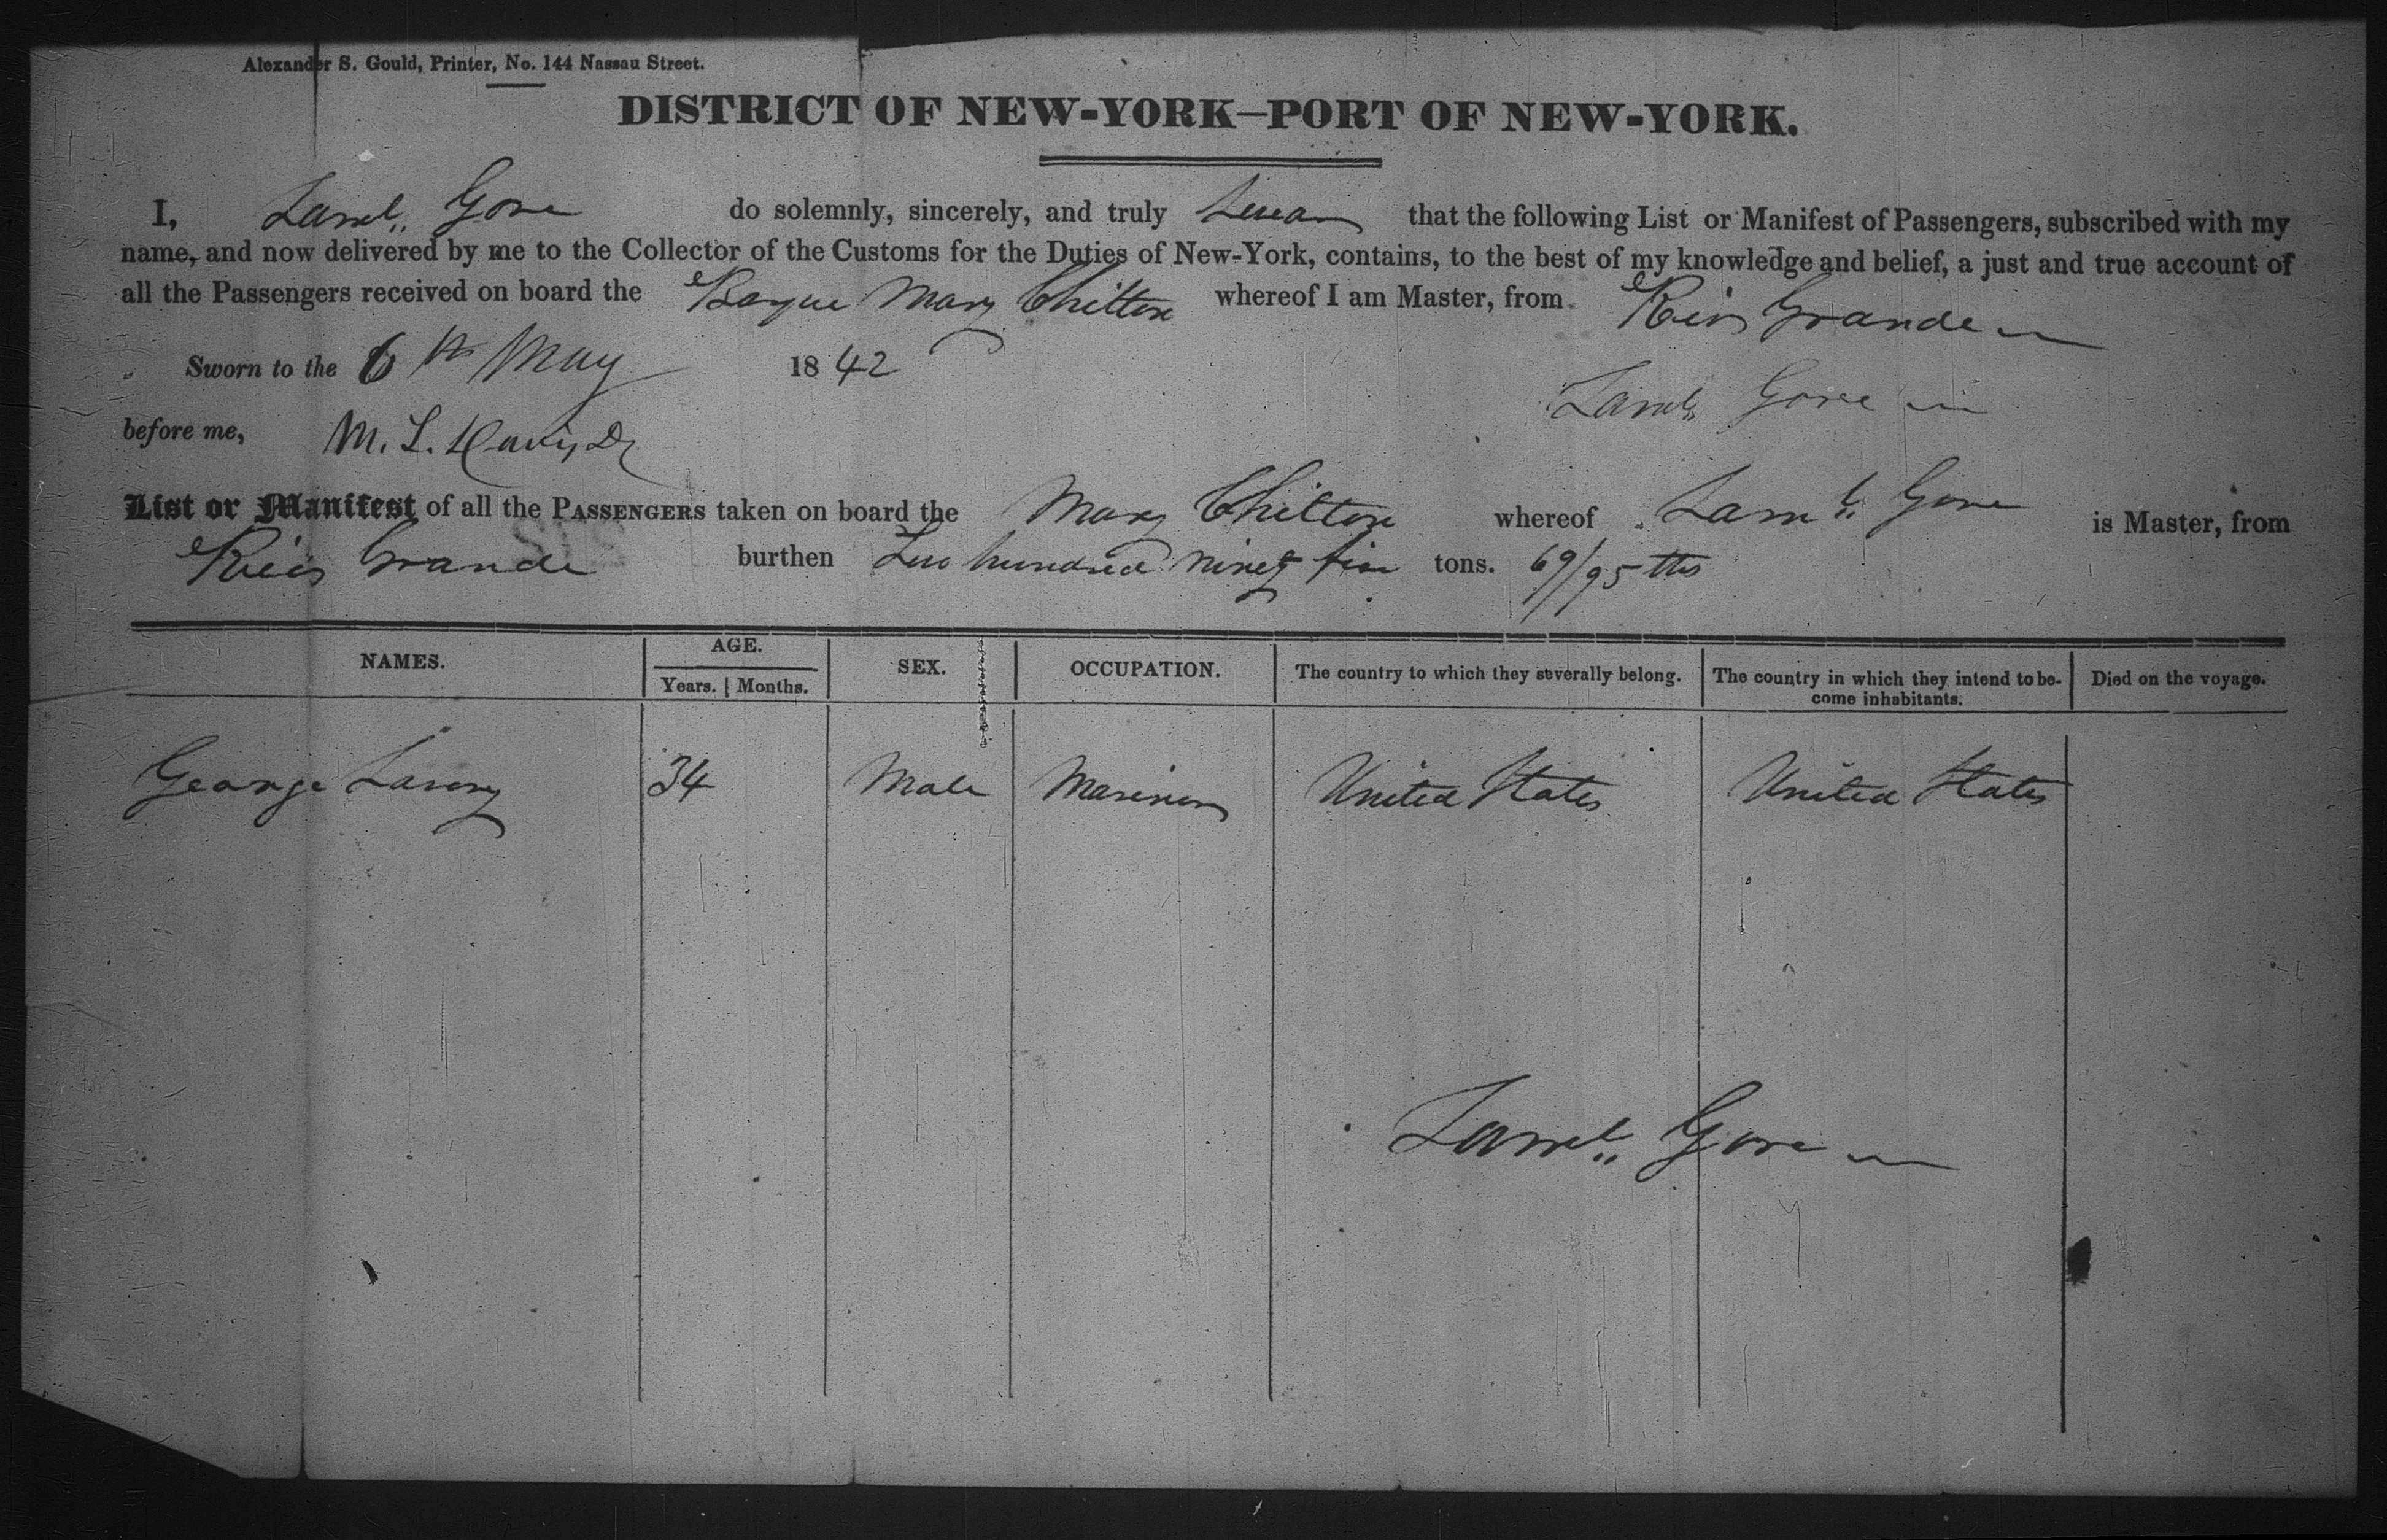 Alexander S. Gould, Printer, No. 144 Nassau Street.
DISTRICT OF NEW-YORK—PORT OF NEW-YORK.
I, Saml. Gore do solemnly, sincerely, and truly swear that the following List or Manifest of Passengers, subscribed with my
name, and now delivered by me to the Collector of the Customs for the Duties of New-York, contains, to the best of my knowledge and belief, a just and true account of
all the Passengers received on board the Barque Mary Chilton whereof I am Master, from Rio Grande
Sworn to the 6th May 1842
Saml. Gore
before me, M. L. Davis
List or Manifest of all the PASSENGERS taken on board the Mary Chilton whereof Saml. Gore is Master, from
Rio Grande burthen Two hundred ninety five tons. 69/95 ths
NAMES. AGE. SEX. OCCUPATION. The country to which they severally belong. The country in which they intend to be- Died on the voyage.
Years. Months. come inhabitants.
George 34 Male Mariner United States United States
Saml. Gore